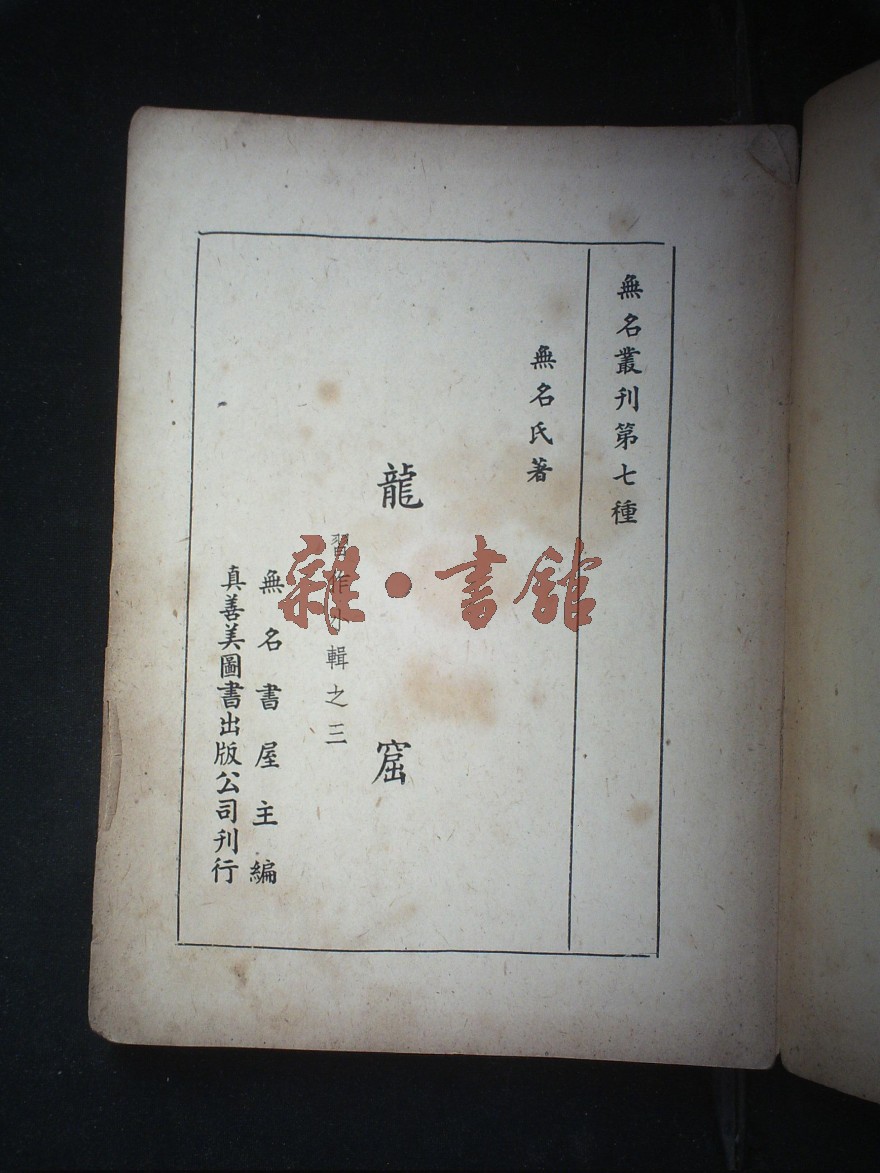 無名叢刊第七種
無名氏著
龍窟
習作小輯之三
無名書屋主編
真善美圖書出版公司刊行
雜·書館